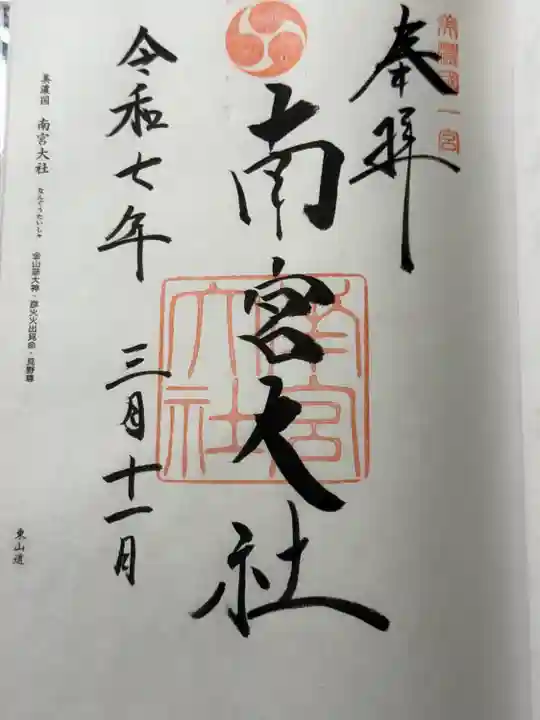 美濃国一宮
奉拝
南宮大社
南宮大社
令和七年 三月十一日
美濃国 南宮大社 なんぐうたいしゃ 金山彦大神・彦火火出見命・見野尊
東山道